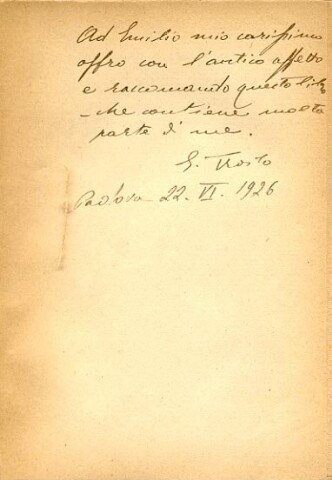 Ad Emilio mio carissimo
offro con l'antico affetto
e raccomando questo libro
che contiene molta
parte di me.
E. Troilo
Padova 22. VI. 1926